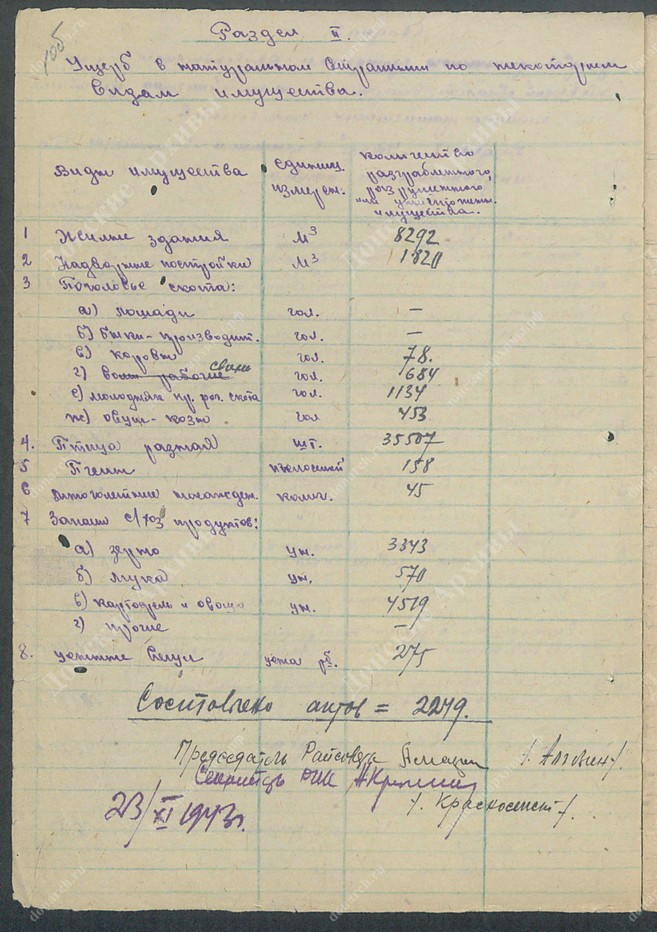 106
Раздел II.
Ущерб в натуральном выражении по некоторым
видам имущества.
Виды имущества единиц. измерен. количество разграбленного, разрушенного или уничтожен. имущества.
1 Жилые здания м³ 8292
2 Надворные постройки м³ 1820
3 Поголовье скота:
а) лошади гол. —
б) быки-производит. гол. —
в) коровы гол. 78.
г) волы рабочие свиньи гол. 684
е) молодняк кр. рог. скота гол. 1134
ж) овцы-козы гол 453
4. Птица разная шт. 35507
5 Пчелы пчелосемей 158
6 Многолетние насажден. колич. 45
7 Запасы с/хоз продуктов:
а) зерно цн. 3343
б) мука цн. 570
в) картофель и овощи цн. 4519
г) прочие —
8. ценные вещи цена рб. 275
Составлено актов = 2279.
Председатель Райсовета
Секретарь
23/XI 1943г.